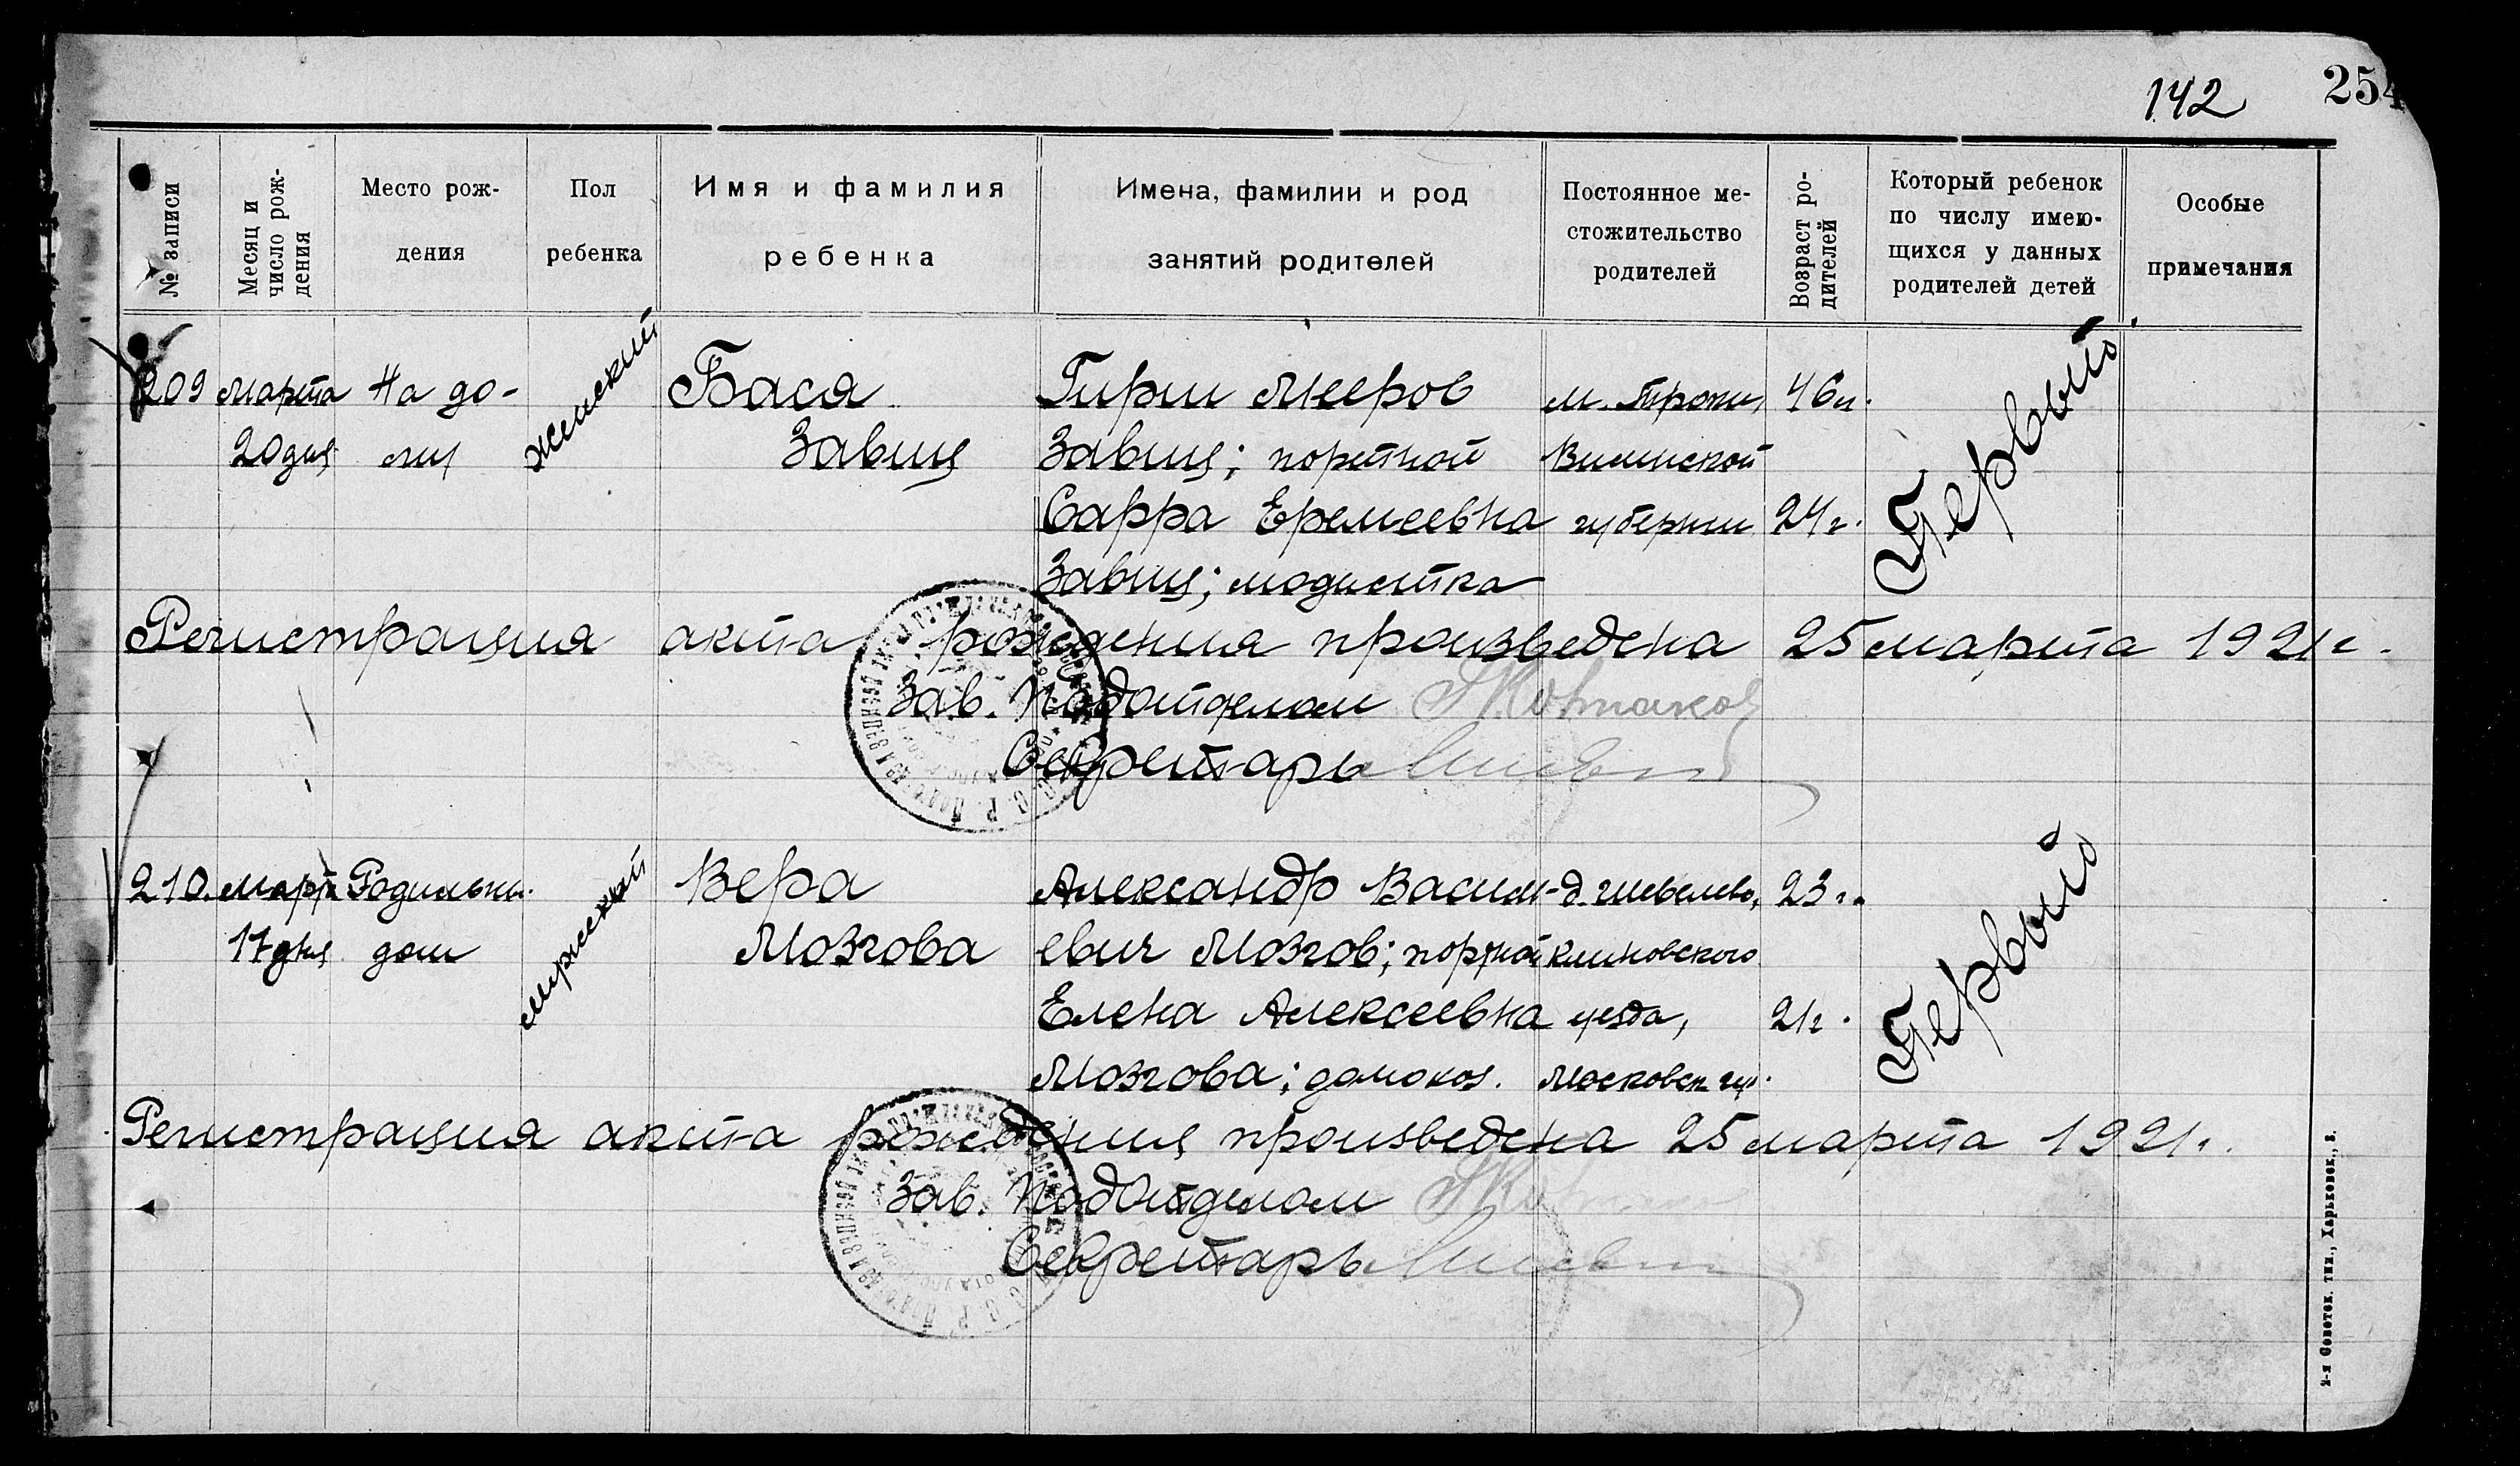 142
254
№ записи
Месяц и число рож-
дения
Место рож-
дения
Пол
ребенка
Имя и фамилия
ребенка
Имена, фамилии и род
занятий родителей
Постоянное ме-
стожительство
родителей
Возраст ро-
дителей
Который ребенок
по числу имею-
щихся у данных
родителей детей
Особые
примечания
209 Марта На до- женский Бася Гирш Мееров м. Троки, 46 л. Первый
20 дня му Завиц Завиц; портной Виленской
Сарра Еремеевна губернии 24 г.
Завиц; модистка
Регистрация акта рождения произведена 25 марта 1921 г.
Зав. Подотделом
Секретарь
210. Марта Родильн. мужской Вера Александр Василь- д. Шевелево, 23 г. Первый
17 дня дом Мозгова евич Мозгов; портной Клиновского
Елена Алексеевна уезда, 21 г.
Мозгова; домохоз. Московск. гу.
Регистрация акта рождения произведена 25 марта 1921 г.
Зав. Подотделом
Секретарь
2-я Советск. тип., Харьковск., 3.